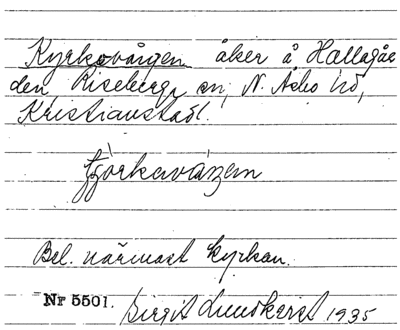 Kyrkovången åker å Hallagår
den, Riseberga sn, N. Åsbo hd,
Kristianstads l.
Bel. närmast kyrkan.
Nr 5501. Birgit Lundkvist 1935